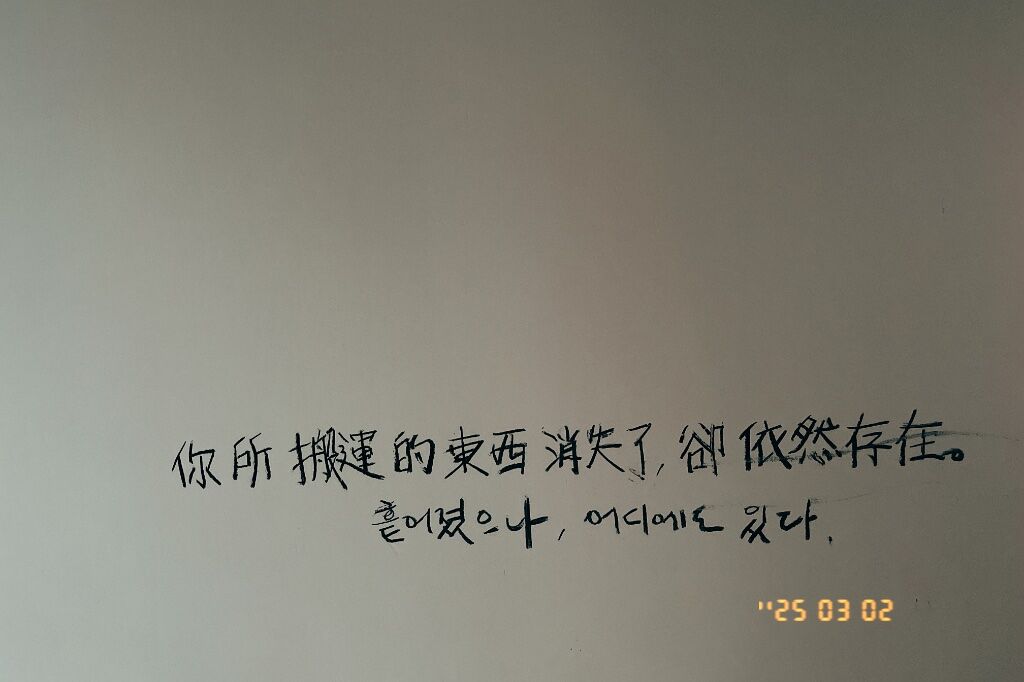 你所搬運的東西消失了,卻依然存在。
흩어졌으나, 어디에도 있다.
''25 03 02